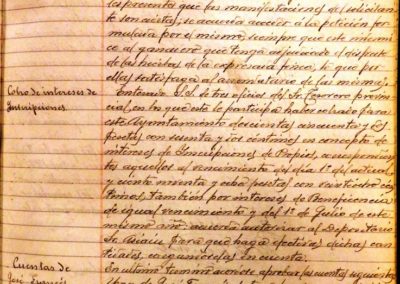 les presenta que las manifestaciones del solicitan-
te son ciertas, se acuerda acceder á la petición for-
mulada por el mismo, siempre que este mismo
al ganadero que tenga adjudicado el disfrute
de las hierbas de la expresada finca, lo que por
ellas satisfaga al arrendatario de las mismas.
Cobro de intereses de
Inscripciones.
Enterado S.S. de tres oficios del Sr. Tesorero provin-
cial, en los que este le participa haber cobrado para
este Ayuntamiento doscientas cincuenta y
pesetas con setenta y dos céntimos en concepto de
intereses de Inscripciones de Propios, correspondien-
tes aquellos al vencimiento del día 1º del actual,
y ciento noventa y ocho pesetas con veinticuatro cén-
timos, también por intereses de Beneficencia
de igual vencimiento y del 1º de Julio de este
mismo año, acuerda autorizar al Depositario
para que haga efectivas dichas can-
tidades, ingresándolas en cuenta.
Cuentas de
José
En último término acordó aprobar las cuentas siguientes